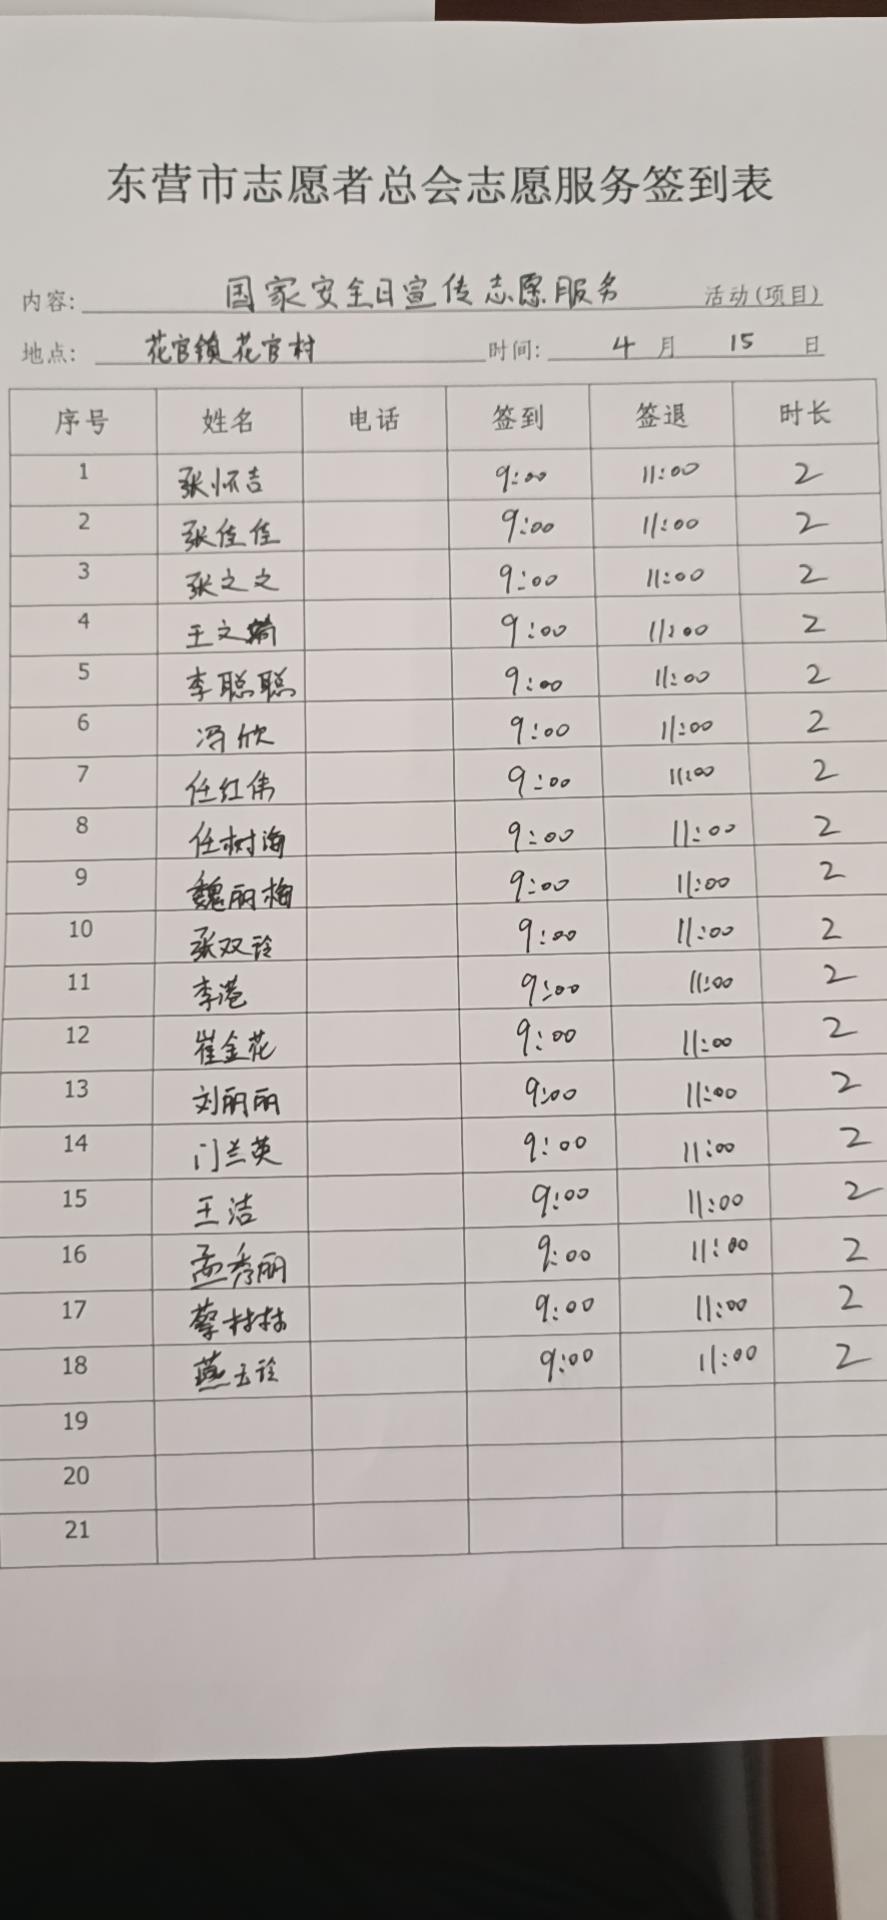 东营市志愿者总会志愿服务签到表
内容: 国家安全日宣传志愿服务 活动(项目)
地点: 花官镇花官村 时间: 4 月 15 日
序号 姓名 电话 签到 签退 时长
1 张怀吉 9:00 11:00 2
2 张佳佳 9:00 11:00 2
3 张之之 9:00 11:00 2
4 王文 9:00 11:00 2
5 李聪聪 9:00 11:00 2
6 冯欣 9:00 11:00 2
7 任红伟 9:00 11:00 2
8 任树海 9:00 11:00 2
9 魏丽梅 9:00 11:00 2
10 张双玲 9:00 11:00 2
11 李港 9:00 11:00 2
12 崔金花 9:00 11:00 2
13 刘丽丽 9:00 11:00 2
14 门兰英 9:00 11:00 2
15 王洁 9:00 11:00 2
16 孟秀丽 9:00 11:00 2
17 蔡林林 9:00 11:00 2
18 燕玉玲 9:00 11:00 2
19
20
21